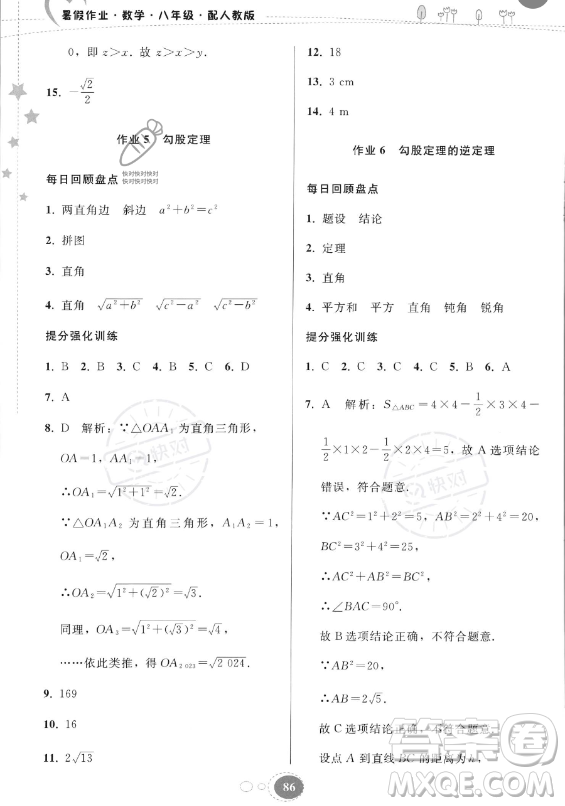 暑假作业·数学·八年级·配人教版
0，即 z＞x．故 z＞x＞y．
15. －√2/2
作业 5　勾股定理
快对快对快对
快对快对快对
每日回顾盘点
1. 两直角边　斜边　a²＋b²＝c²
2. 拼图
3. 直角
4. 直角　√(a²＋b²)　√(c²－a²)　√(c²－b²)
提分强化训练
1. B　2. B　3. C　4. A　5. C　6. A
7. A
8. D　解析：∵△OAA₁ 为直角三角形，
OA＝1，AA₁＝1，
∴OA₁＝√(1²＋1²)＝√2．
∵△OA₁A₂ 为直角三角形，A₁A₂＝1，
OA₁＝√2，
∴OA₂＝√(1²＋(√2)²)＝√3．
同理，OA₃＝√(1²＋(√3)²)＝√4，
……依此类推，得 OA₂ ₀₂₃＝√(2 024)．
9. 169
10. 16
11. 2√13
12. 18
13. 3 cm
14. 4 m
作业 6　勾股定理的逆定理
每日回顾盘点
1. 题设　结论
2. 定理
3. 直角
4. 平方和　平方　直角　钝角　锐角
提分强化训练
1. C　2. B　3. C　4. C　5. B　6. A
7. A　解析：S△ABC＝4×4－1/2×3×4－
1/2×1×2－1/2×2×4＝5，故 A 选项结论
错误，符合题意．
∵AC²＝1²＋2²＝5，AB²＝2²＋4²＝20，
BC²＝3²＋4²＝25，
∴AC²＋AB²＝BC²，
∴∠BAC＝90°，
故 B 选项结论正确，不符合题意．
∵AB²＝20，
∴AB＝2√5．
故 C 选项结论正确，不符合题意．
设点 A 到直线 BC 的距离为 h，
86
快对
快对
作业精灵
答案圈
MXQE.COM